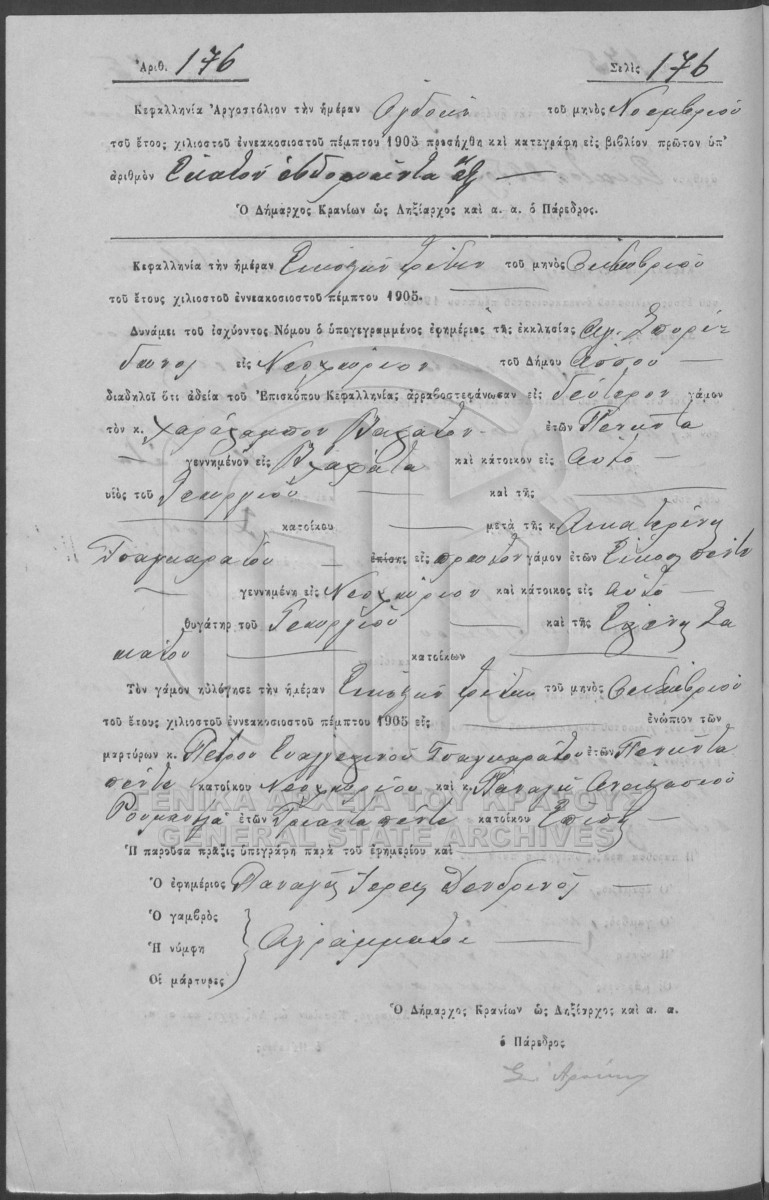 Ἀριθ. 176
Σελὶς 176
Κεφαλληνία Ἀργοστόλιον τὴν ἡμέραν Ὀγδόην τοῦ μηνὸς Νοεμβρίου
τοῦ ἔτους χιλιοστοῦ ἐννεακοσιοστοῦ πέμπτου 1905 προσήχθη καὶ κατεγράφη εἰς βιβλίον πρῶτον ὑπ'
ἀριθμὸν Ἑκατὸν ἑβδομήκοντα ἓξ
Ὁ Δήμαρχος Κρανίων ὡς Ληξίαρχος καὶ α. α. ὁ Πάρεδρος.
Κεφαλληνία τὴν ἡμέραν Εἰκοστὴν τρίτην τοῦ μηνὸς Ὀκτωβρίου
τοῦ ἔτους χιλιοστοῦ ἐννεακοσιοστοῦ πέμπτου 1905.
Δυνάμει τοῦ ἰσχύοντος Νόμου ὁ ὑπογεγραμμένος ἐφημέριος τῆς ἐκκλησίας Ἁγ. Σπυρί
δωνος εἰς Νεοχώριον τοῦ Δήμου Ἄσσου
διαδηλοῖ ὅτι ἀδεία τοῦ Ἐπισκόπου Κεφαλληνίας ἀρραβοστεφάνωσαν εἰς δεύτερον γάμον
τὸν κ. Χαράλαμπον Βλαχάτον ἐτῶν Πενῆντα
γεννημένον εἰς Βλαχάτα καὶ κάτοικον εἰς Αὐτὸ
υἱὸς τοῦ Γεωργίου καὶ τῆς
κατοίκου μετὰ τῆς κ. Αἰκατερίνης
Τσαγκαράτου ἐπίσης εἰς πρῶτον γάμον ἐτῶν Εἴκοσι πέντε
γεννημένη εἰς Νεοχώριον καὶ κάτοικος εἰς Αὐτὸ
θυγάτηρ τοῦ Γεωργίου καὶ τῆς Ἑλένης Σα
κάτου κατοίκων
Τὸν γάμον ηὐλόγησε τὴν ἡμέραν Εἰκοστὴν τρίτην τοῦ μηνὸς Ὀκτωβρίου
τοῦ ἔτους χιλιοστοῦ ἐννεακοσιοστοῦ πέμπτου 1905 εἰς ἐνώπιον τῶν
μαρτύρων κ. Πέτρου Εὐαγγελινοῦ Τσαγκαράτου ἐτῶν Πενῆντα
πέντε κατοίκου Νεοχωρίου καὶ κ. Παναγῆ Ἀναστασίου
ἐτῶν Τριάντα πέντε κατοίκου Ἐπίσης
ΓΕΝΙΚΑ ΑΡΧΕΙΑ ΤΟΥ ΚΡΑΤΟΥΣ
GENERAL STATE ARCHIVES
Ἡ παροῦσα πρᾶξις ὑπεγράφη παρὰ τοῦ ἐφημερίου καὶ
Ὁ ἐφημέριος Παναγῆς Ἱερεὺς Δενδρινὸς
Ὁ γαμβρὸς
Ἡ νύμφη Ἀγράμματοι
Οἱ μάρτυρες
Ὁ Δήμαρχος Κρανίων ὡς Ληξίαρχος καὶ α. α.
ὁ Πάρεδρος